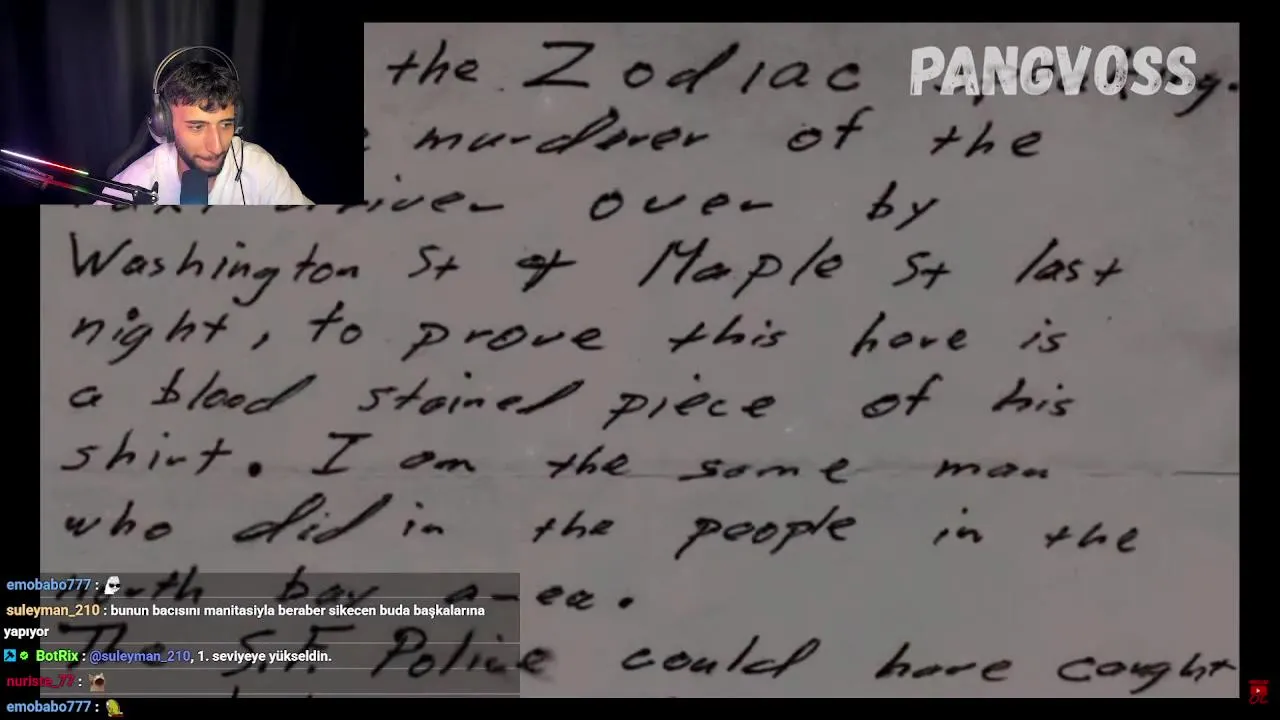 the Zodiac
PANGVOSS
murderer of the
over by
Washington St & Maple St last
night, to prove this here is
a blood stained piece of his
shirt. I am the same man
who did in the people in the
north bay area.
The S.F. Police could have caught
emobabo777 :
suleyman_210 : bunun bacısını manitasiyla beraber sikecen buda başkalarına
yapıyor
BotRix : @suleyman_210, 1. seviyeye yükseldin.
nuriste_77 :
emobabo777 :